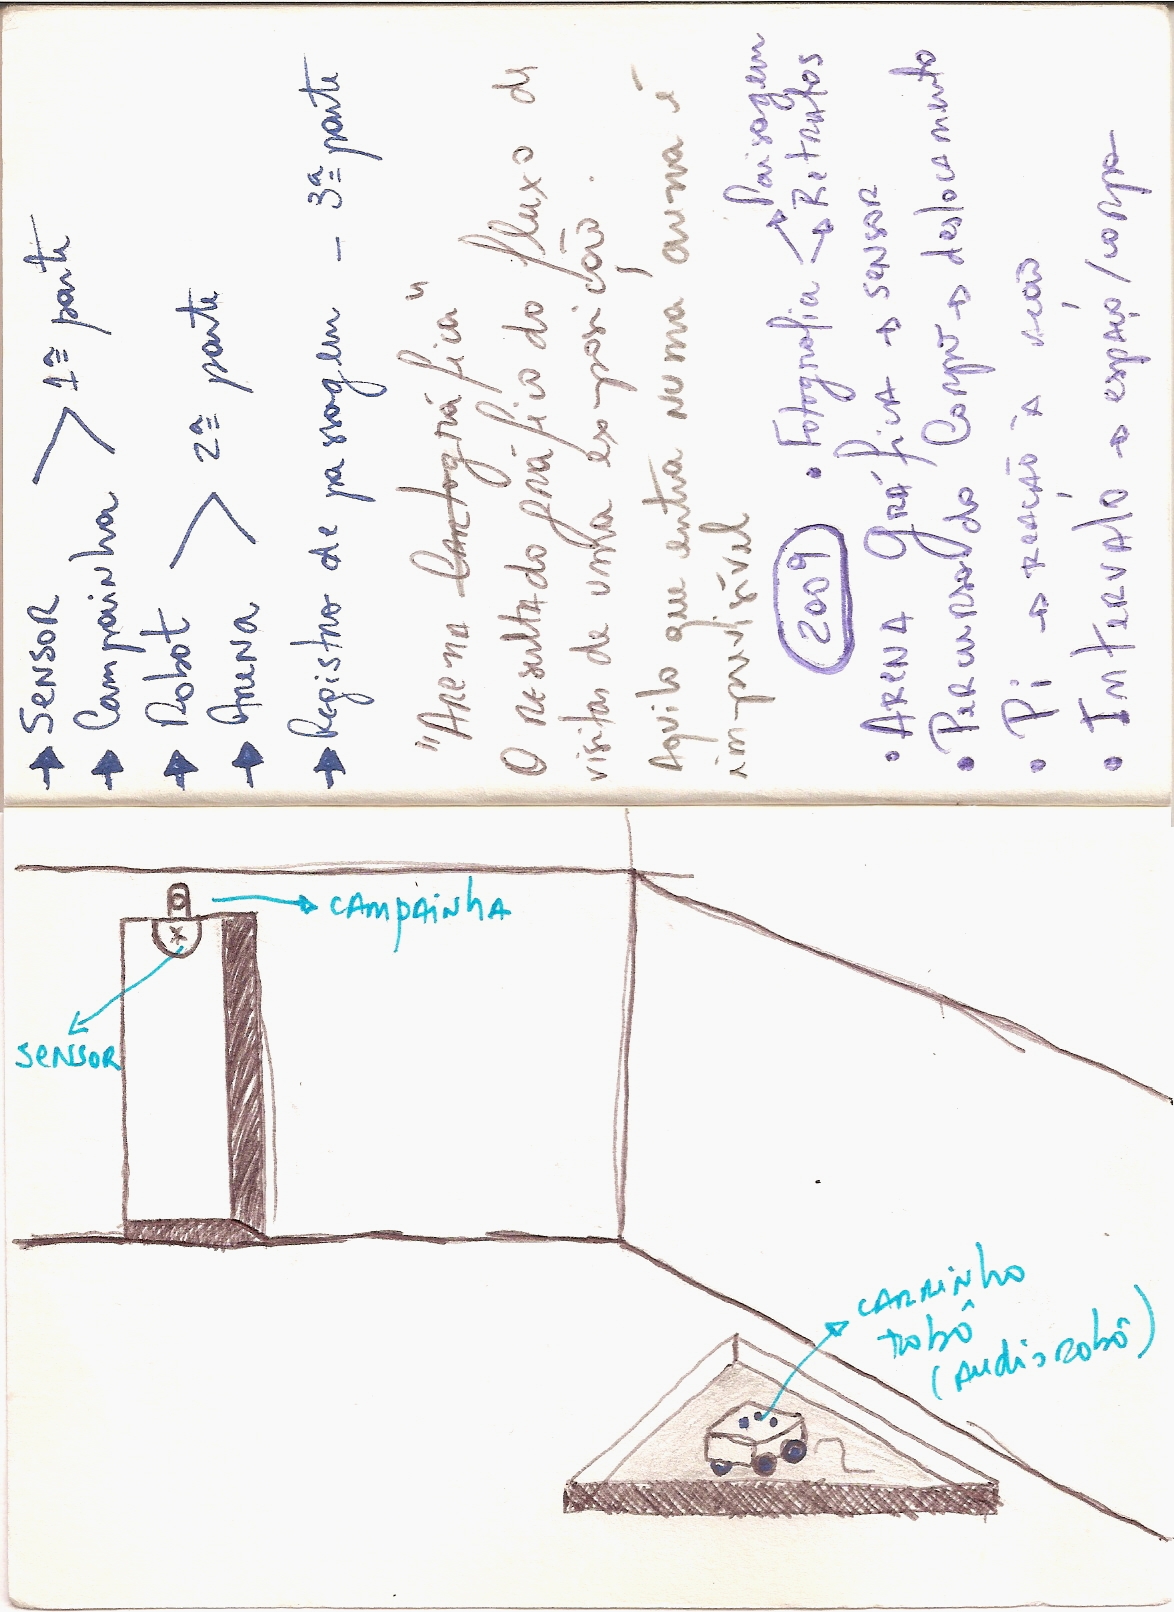 → SENSOR > 1ª parte
→ Campainha
→ Robot > 2ª parte
→ Arena
→ Registro de passagem - 3ª parte
"Arena Cartográfica"
O resultado gráfico do fluxo de
visitas de uma exposição.
Aquilo que entra numa arena é
imprevisível
2009 • Fotografia → Paisagem
→ Retratos
• ARENA gráfica → SENSOR
• PERCURSO do Corpo → deslocamento
• Pi → reação à ação
• INTERVALO → espaço/corpo
CAMPAINHA
SENSOR
CARRINHO
robô
(Audiorobô)